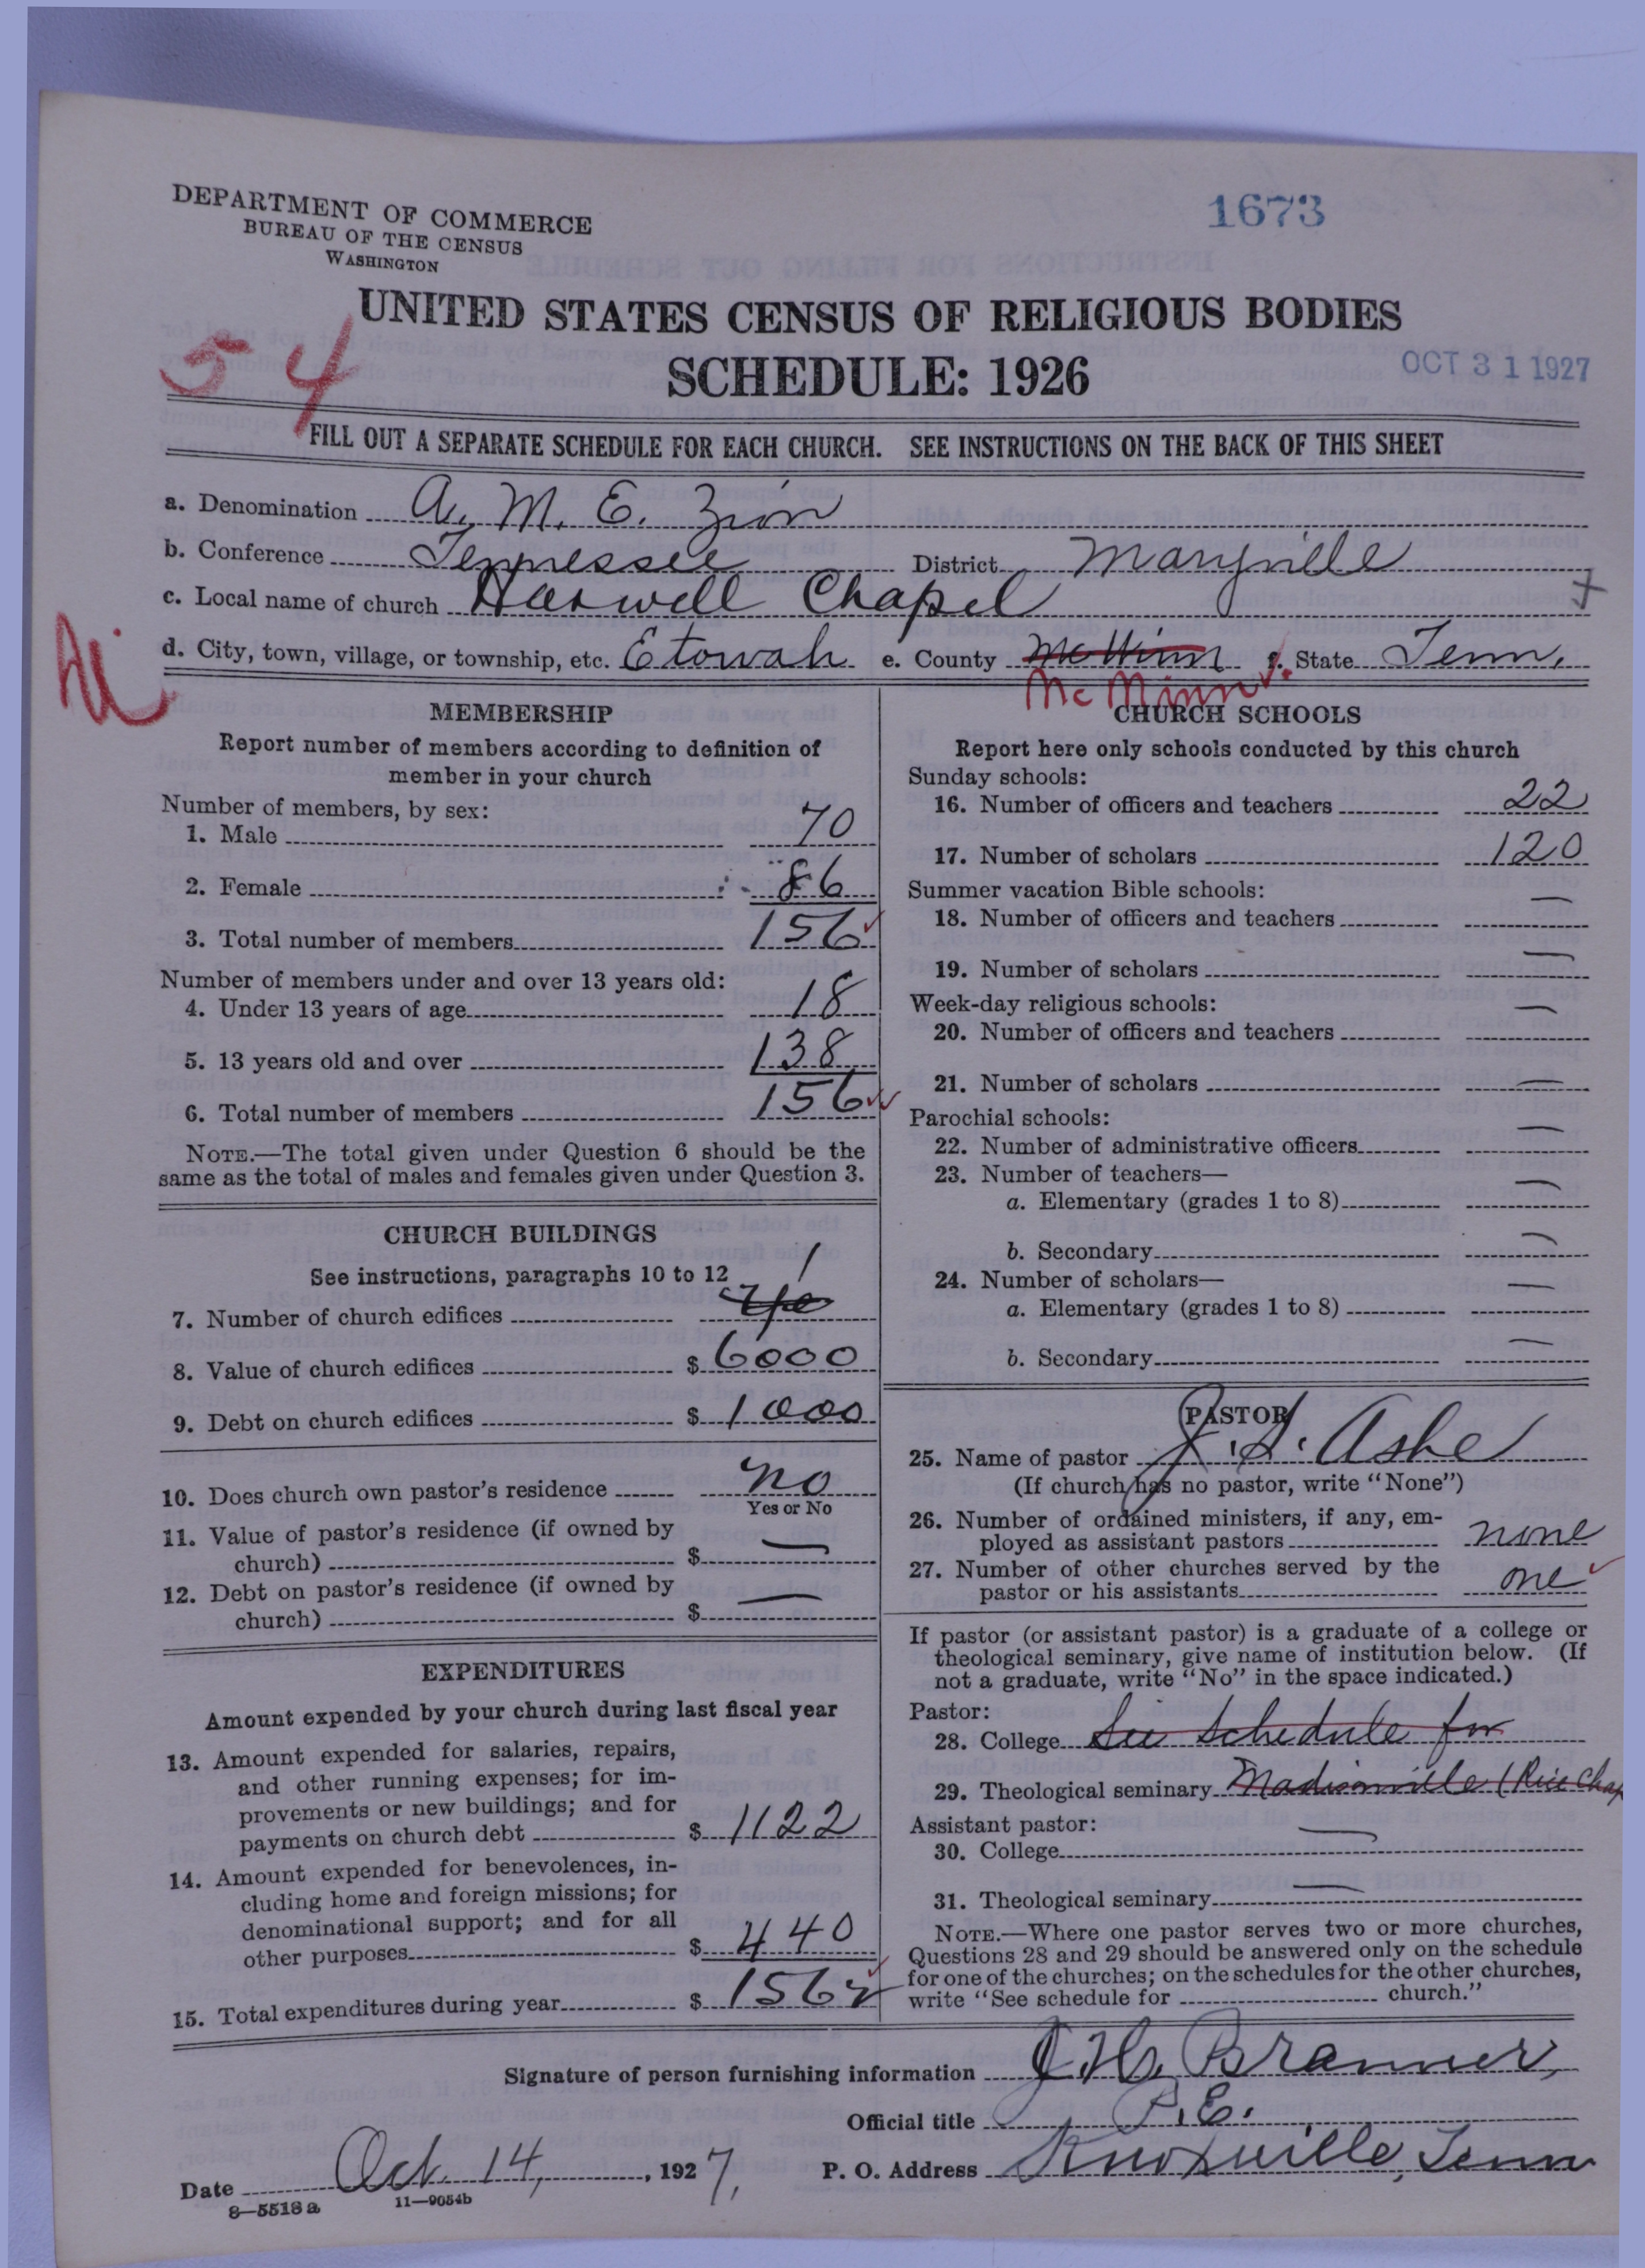 DEPARTMENT OF COMMERCE
BUREAU OF THE CENSUS
WASHINGTON
1673
UNITED STATES CENSUS OF RELIGIOUS BODIES
SCHEDULE: 1926
54
OCT 31 1927
FILL OUT A SEPARATE SCHEDULE FOR EACH CHURCH. SEE INSTRUCTIONS ON THE BACK OF THIS SHEET
a. Denomination A. M. E. Zion
b. Conference Tennessee District Maryville
c. Local name of church Haswell Chapel
d. City, town, village, or township, etc. Etowah e. County McMinn f. State Tenn.
McMinn
MEMBERSHIP
Report number of members according to definition of
member in your church
Number of members, by sex:
1. Male 70
2. Female 86
3. Total number of members 156
Number of members under and over 13 years old:
4. Under 13 years of age 18
5. 13 years old and over 138
6. Total number of members 156
NOTE.—The total given under Question 6 should be the
same as the total of males and females given under Question 3.
CHURCH BUILDINGS
See instructions, paragraphs 10 to 12
7. Number of church edifices 1
8. Value of church edifices $ 6000
9. Debt on church edifices $ 1000
10. Does church own pastor's residence no
Yes or No
11. Value of pastor's residence (if owned by
church) $ —
12. Debt on pastor's residence (if owned by
church) $ —
EXPENDITURES
Amount expended by your church during last fiscal year
13. Amount expended for salaries, repairs,
and other running expenses; for im-
provements or new buildings; and for
payments on church debt $ 1122
14. Amount expended for benevolences, in-
cluding home and foreign missions; for
denominational support; and for all
other purposes $ 440
15. Total expenditures during year $ 1562
CHURCH SCHOOLS
Report here only schools conducted by this church
Sunday schools:
16. Number of officers and teachers 22
17. Number of scholars 120
Summer vacation Bible schools:
18. Number of officers and teachers —
19. Number of scholars —
Week-day religious schools:
20. Number of officers and teachers —
21. Number of scholars —
Parochial schools:
22. Number of administrative officers —
23. Number of teachers—
a. Elementary (grades 1 to 8) —
b. Secondary —
24. Number of scholars—
a. Elementary (grades 1 to 8) —
b. Secondary —
PASTOR
25. Name of pastor J. S. Ashe
(If church has no pastor, write "None")
26. Number of ordained ministers, if any, em-
ployed as assistant pastors none
27. Number of other churches served by the
pastor or his assistants one
If pastor (or assistant pastor) is a graduate of a college or
theological seminary, give name of institution below. (If
not a graduate, write "No" in the space indicated.)
Pastor:
28. College See Schedule for
29. Theological seminary Madisonville (Rice Chap
Assistant pastor:
30. College —
31. Theological seminary —
NOTE.—Where one pastor serves two or more churches,
Questions 28 and 29 should be answered only on the schedule
for one of the churches; on the schedules for the other churches,
write "See schedule for church."
Signature of person furnishing information J. H. Branner,
Official title P. E.
Date Oct. 14, 1927, P. O. Address Knoxville, Tenn
8—5518 a 11—9054b